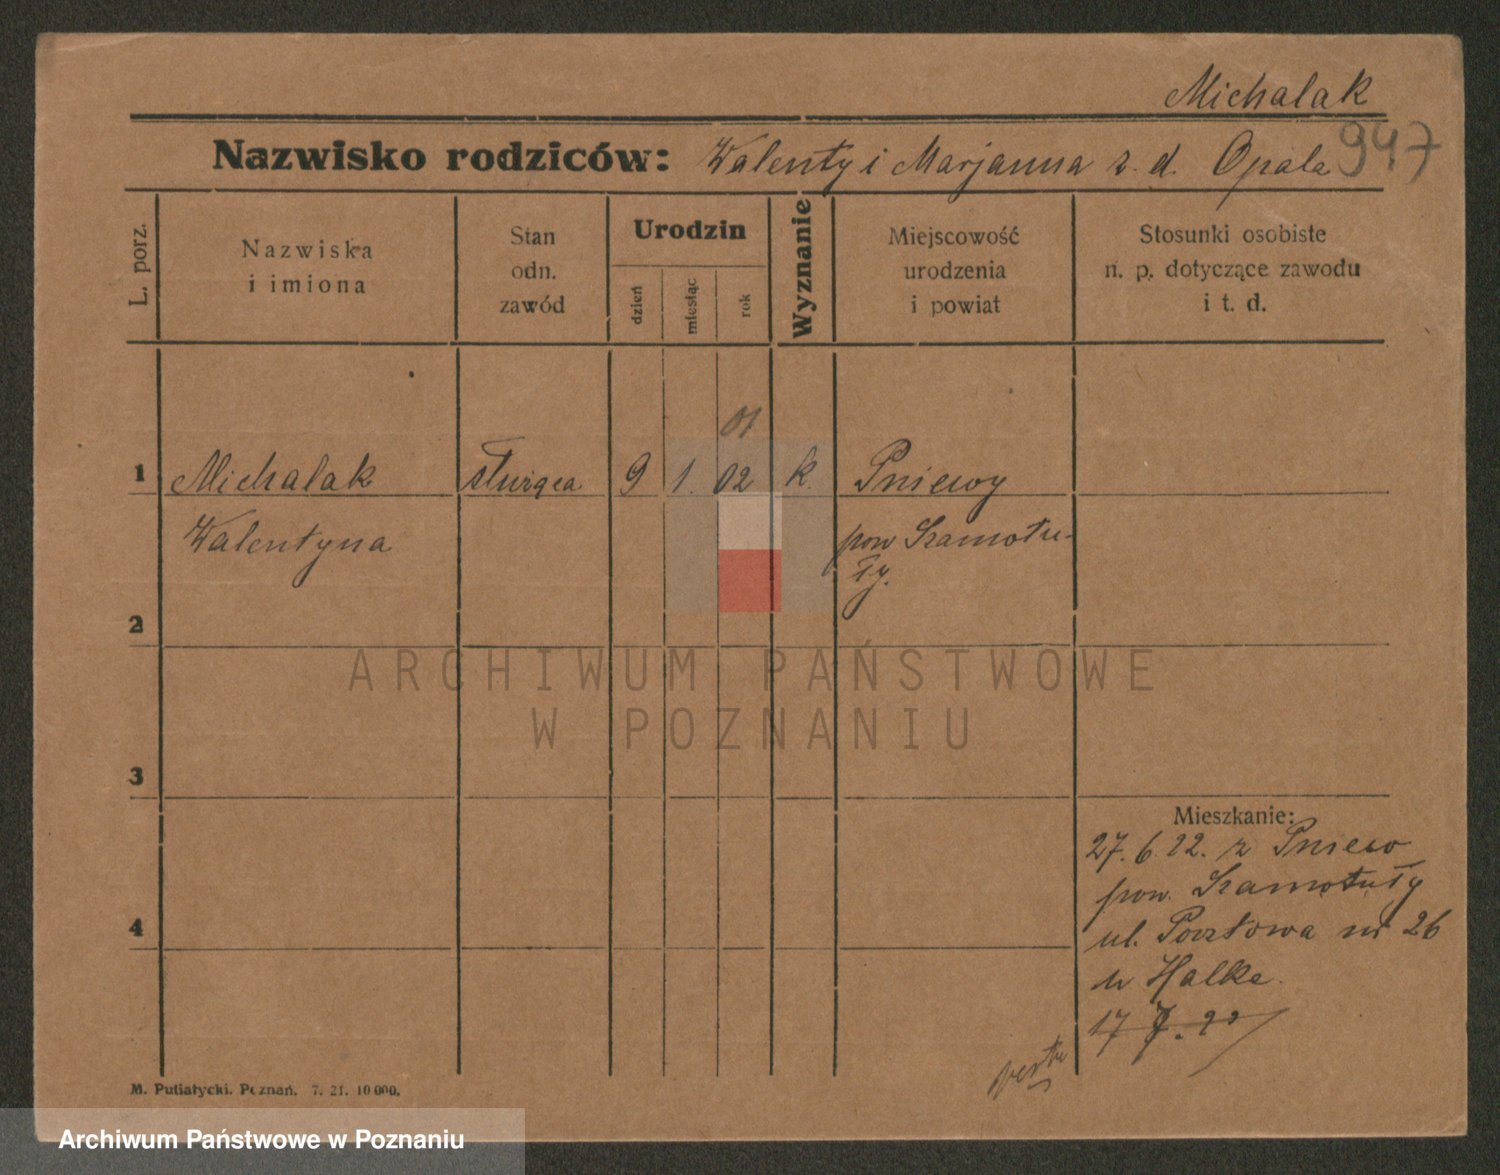 Michalak
947
Nazwisko rodziców: Walenty i Marjanna z. d. Opala
L. porz.
Nazwiska
i imiona
Stan
odn.
zawód
Urodzin
dzień
miesiąc
rok
Wyznanie
Miejscowość
urodzenia
i powiat
Stosunki osobiste
n. p. dotyczące zawodu
i t. d.
01
1 Michalak służąca 9 1. 02 k. Pniewy
Walentyna pow Szamotu-
ły.
2
ARCHIWUM PAŃSTWOWE
W POZNANIU
3
Mieszkanie:
27. 6. 22. z Pniew
pow. Szamotuły
4
ul. Pocztowa nr 26
u Halke.
17 7. 22
M. Putiatycki. Poznań. 7. 21. 10 000.
Archiwum Państwowe w Poznaniu